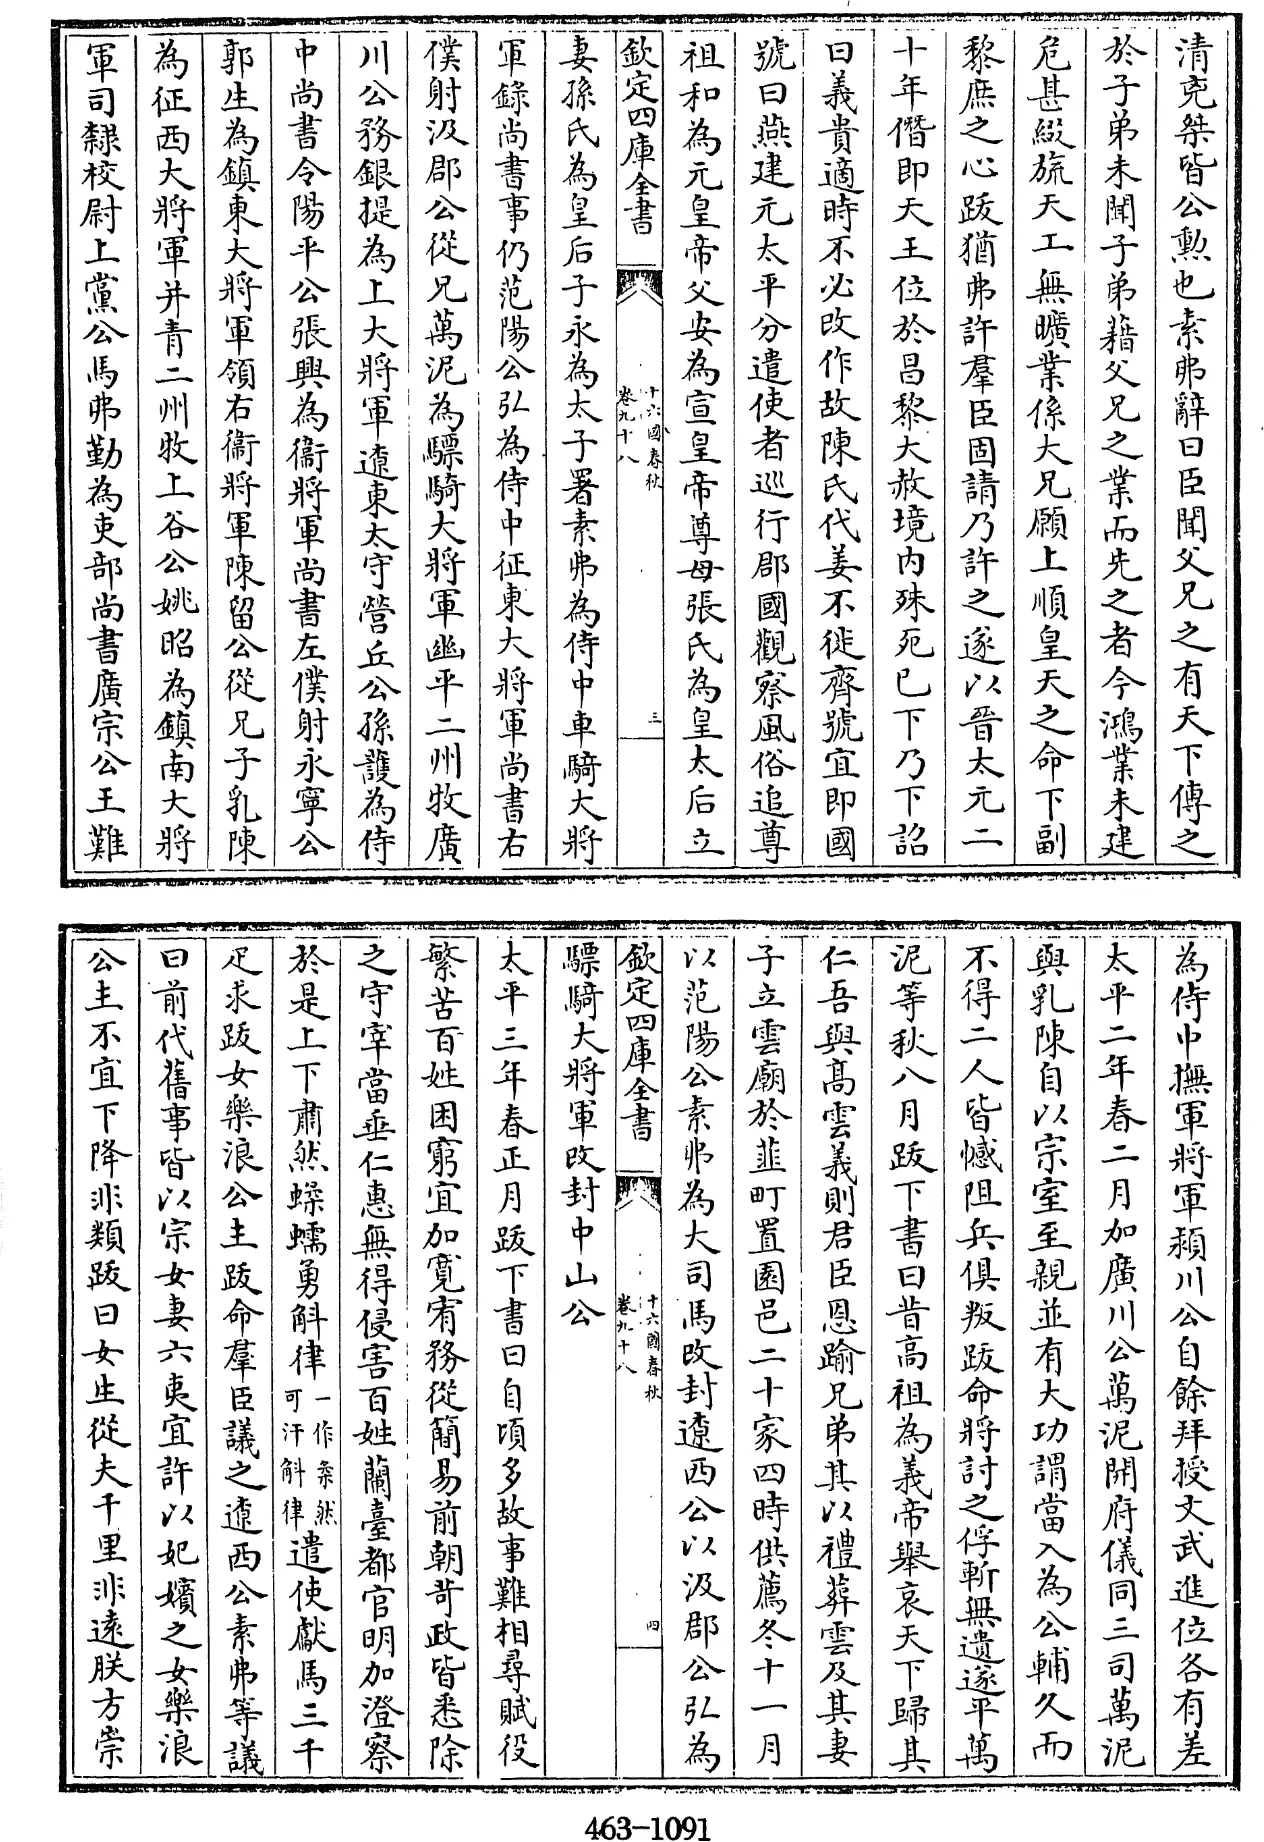 清兇桀皆公勲也素弗辭曰臣聞父兄之有天下傳之
於子弟未聞子弟藉父兄之業而先之者今鴻業未建
危甚綴旒天工無曠業係大兄願上順皇天之命下副
黎庶之心跋猶弗許羣臣固請乃許之遂以晉太元二
十年僭即天王位於昌黎大赦境内殊死已下乃下詔
曰義貴適時不必改作故陳氏代姜不徙齊號宜即國
號曰燕建元太平分遣使者巡行郡國觀察風俗追尊
祖和為元皇帝父安為宣皇帝尊母張氏為皇太后立
欽定四庫全書
十六國春秋
卷九十八
三
妻孫氏為皇后子永為太子署素弗為侍中車騎大將
軍錄尚書事仍范陽公弘為侍中征東大將軍尚書右
僕射汲郡公從兄萬泥為驃騎大將軍幽平二州牧廣
川公務銀提為上大將軍遼東太守營丘公孫護為侍
中尚書令陽平公張興為衞將軍尚書左僕射永寧公
郭生為鎮東大將軍領右衞將軍陳留公從兄子乳陳
為征西大將軍并青二州牧上谷公姚昭為鎮南大將
軍司隸校尉上黨公馬弗勤為吏部尚書廣宗公王難
為侍中撫軍將軍潁川公自餘拜授文武進位各有差
太平二年春二月加廣川公萬泥開府儀同三司萬泥
與乳陳自以宗室至親並有大功謂當入為公輔久而
不得二人皆憾阻兵俱叛跋命將討之俘斬無遺遂平萬
泥等秋八月跋下書曰昔高祖為義帝舉哀天下歸其
仁吾與高雲義則君臣恩踰兄弟其以禮葬雲及其妻
子立雲廟於韮町置園邑二十家四時供薦冬十一月
以范陽公素弗為大司馬改封遼西公以汲郡公弘為
欽定四庫全書
十六國春秋
卷九十八
四
驃騎大將軍改封中山公
太平三年春正月跋下書曰自頃多故事難相尋賦役
繁苦百姓困窮宜加寬宥務從簡易前朝苛政皆悉除
之守宰當垂仁惠無得侵害百姓蘭臺都官明加澄察
於是上下肅然蠑蠕勇斛律一作柔然可汗斛律遣使獻馬三千
疋求跋女樂浪公主跋命羣臣議之遼西公素弗等議
曰前代舊事皆以宗女妻六夷宜許以妃嬪之女樂浪
公主不宜下降非類跋曰女生從夫千里非遠朕方崇
463-1091